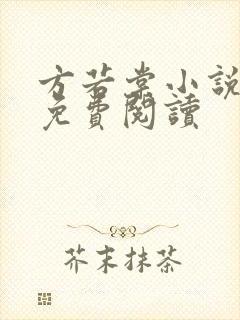 方若棠小說
免費閱讀
芥末抹茶